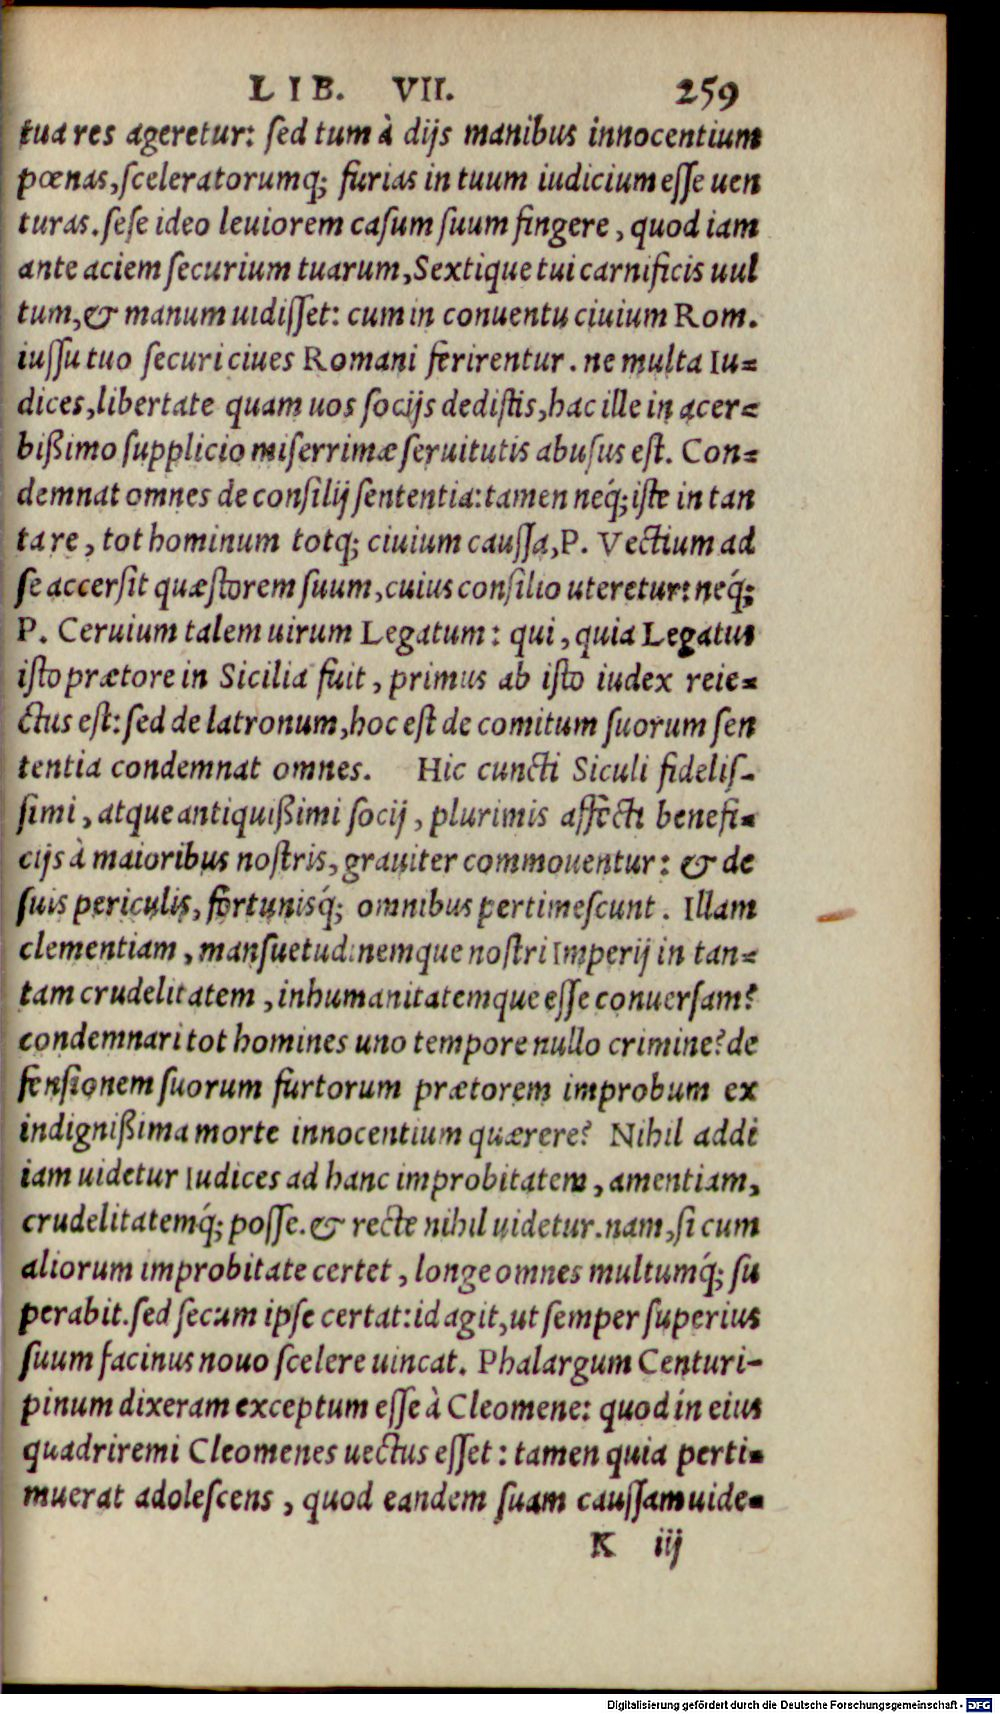 LIB. VII. 259
tua res ageretur: sed tum à dijs manibus innocentium
pœnas, sceleratorumq; furias in tuum iudicium esse uen
turas. sese ideo leuiorem casum suum fingere, quod iam
ante aciem securium tuarum, Sextique tui carnificis uul
tum, & manum uidisset: cum in conuentu ciuium Rom.
iussu tuo securi ciues Romani ferirentur. ne multa Iu=
dices, libertate quam uos socijs dedistis, hac ille in acer=
bißimo supplicio miserrimæ seruitutis abusus est. Con=
demnat omnes de consilij sententia: tamen neq́; iste in tan
ta re, tot hominum totq; ciuium caussa, P. Vectium ad
se accersit quæstorem suum, cuius consilio uteretur: neq́;
P. Ceruium talem uirum Legatum: qui, quia Legatus
isto prætore in Sicilia fuit, primus ab isto iudex reie=
ctus est: sed de latronum, hoc est de comitum suorum sen
tentia condemnat omnes. Hic cuncti Siculi fidelis-
simi, atque antiquißimi socij, plurimis affecti benefi=
cijs à maioribus nostris, grauiter commouentur: & de
suis periculis, fortunisq́; omnibus pertimescunt. Illam
clementiam, mansuetudinemque nostri Imperij in tan=
tam crudelitatem, inhumanitatemque esse conuersam?
condemnari tot homines uno tempore nullo crimine? de
fensionem suorum furtorum prætorem improbum ex
indignißima morte innocentium quærere? Nihil addi
iam uidetur Iudices ad hanc improbitatem, amentiam,
crudelitatemq́; posse. & recte nihil uidetur. nam, si cum
aliorum improbitate certet, longe omnes multumq́; su
perabit. sed secum ipse certat: id agit, ut semper superius
suum facinus nouo scelere uincat. Phalargum Centuri-
pinum dixeram exceptum esse à Cleomene: quod in eius
quadriremi Cleomenes uectus esset: tamen quia perti=
muerat adolescens, quod eandem suam caussam uide=
K iij
Digitalisierung gefördert durch die Deutsche Forschungsgemeinschaft - DFG